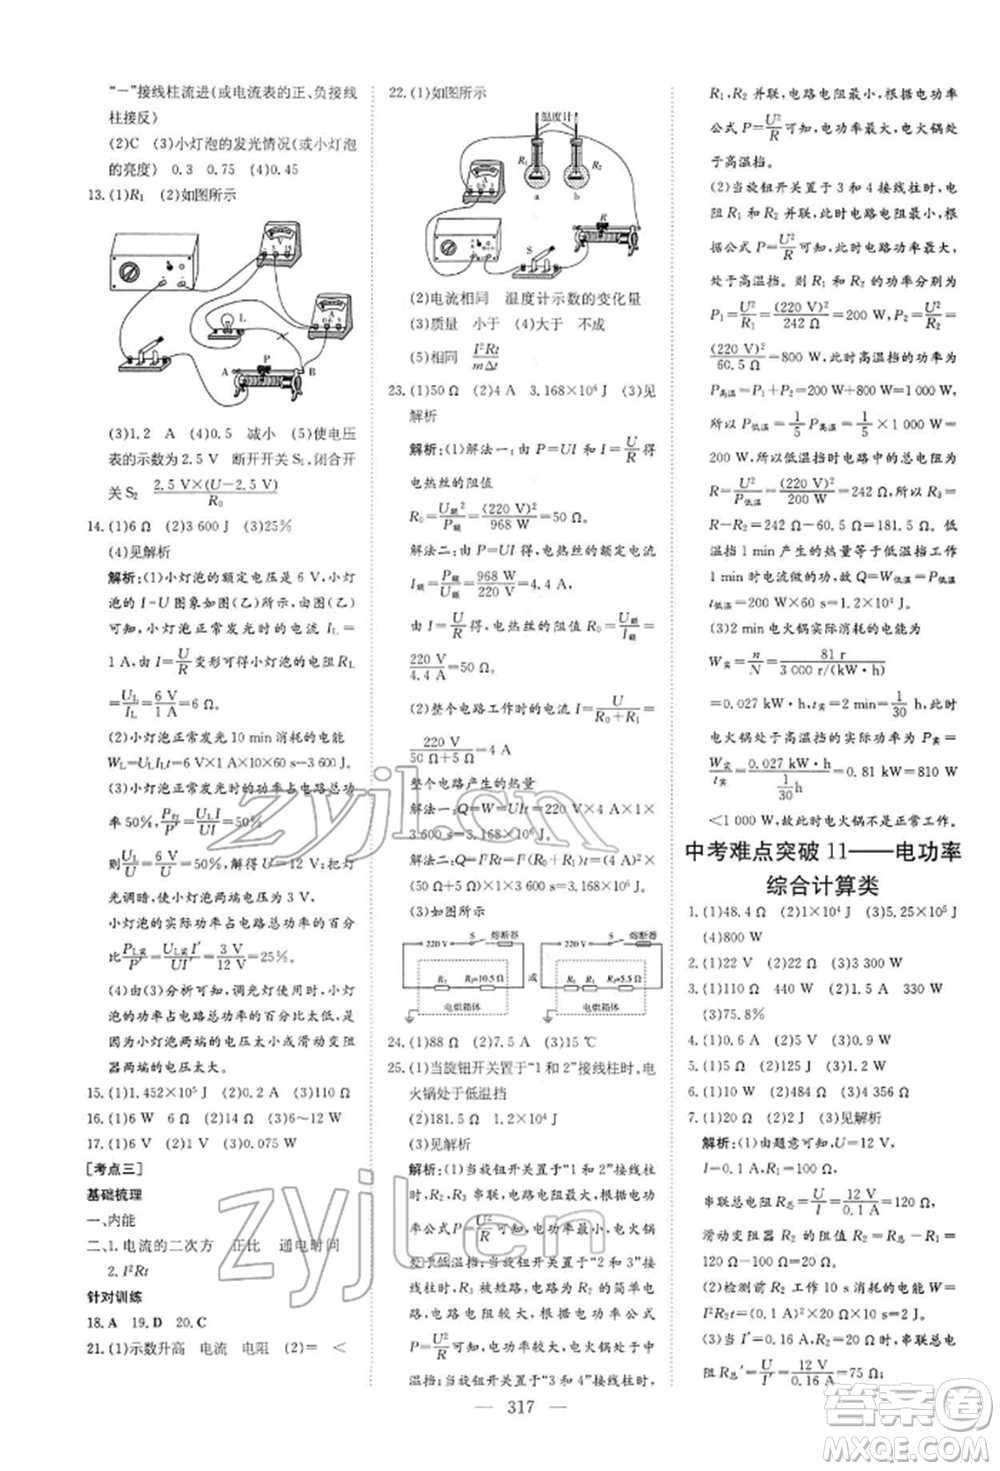 “－”接线柱流进(或电流表的正、负接线
柱接反)
(2)C　(3)小灯泡的发光情况(或小灯泡
的亮度)　0.3　0.75　(4)0.45
13.(1)R₁　(2)如图所示
V
A
L
P
A
B
(3)1.2　A　(4)0.5　减小　(5)使电压
表的示数为 2.5 V　断开开关 S₁,闭合开
关 S₂　2.5 V×(U－2.5 V)/R₀
14.(1)6 Ω　(2)3 600 J　(3)25%
(4)见解析
解析:(1)小灯泡的额定电压是 6 V,小灯
泡的 I－U 图象如图(乙)所示,由图(乙)
可知,小灯泡正常发光时的电流 I_L＝
1 A,由 I＝U/R 变形可得小灯泡的电阻 R_L
＝U_L/I_L＝6 V/1 A＝6 Ω。
(2)小灯泡正常发光 10 min 消耗的电能
W_L＝U_L I_L t＝6 V×1 A×10×60 s＝3 600 J。
(3)小灯泡正常发光时的功率占电路总功
率 50%,即 P灯/P′＝U_L I_L/UI＝50%
则 U＝U_L/50%＝6 V/50%＝12 V
把灯光调暗,灯泡两端的实际电压为 3 V时,
小灯泡的实际功率占电路总功率的百分
比为 P_L实/P′＝U_L实 I′/UI′＝3 V/12 V＝25%。
(4)由(3)分析可知,调光灯使小灯泡
的功率占电路总功率的百分比减小,
小灯泡两端的电压变小,滑动变阻器
的电压变大。
15.(1)1.452×10⁵ J　(2)2 A　(3)110 Ω
16.(1)6 W　6 Ω　(2)24 Ω　(3)6～10 Ω
17.(1)6 V　(2)1 A　(3)0.075 W
[考点三]
基础梳理
一、内能
二、1.电流的二次方　正比　通电时间
2.I²Rt
针对训练
18.A　19.D　20.C
21.(1)示数升高　电流　电阻　(2)＝　＜
22.(1)如图所示
温度计
R₁
R₂
a
b
A
S
R
(2)电流相同　温度计示数的变化量
(3)质量　小于　(4)大于　不成
(5)相同　I²Rt/mΔt
23.(1)50 Ω　(2)4 A　3.168×10⁶ J　(3)见
解析
解析:(1)解法一:由 P＝UI 和 I＝U/R 得
电热丝的阻值
R₀＝U额²/P额＝(220 V)²/968 W＝50 Ω。
解法二:由 P＝UI 得,电热丝的额定电流
I额＝P额/U额＝968 W/220 V＝4.4 A,
由 I＝U/R 得,电热丝的阻值 R₀＝U额/I额＝
220 V/4.4 A＝50 Ω。
(2)整个电路工作时的电流 I＝U/(R₀＋R₁)
＝220 V/(50 Ω＋5 Ω)＝4 A
整个电路产生的热量
解法一:Q＝W＝UIt＝220 V×4 A×1×
3 600 s＝3.168×10⁶ J。
解法二:Q＝I²Rt＝I²(R₀＋R₁)t＝(4 A)²×
(50 Ω＋5 Ω)×1×3 600 s＝3.168×10⁶ J。
(3)如图所示
220 V　S　熔断器
R₁　R₂=10.5 Ω
电烘箱体
或
220 V　S　熔断器
R₂　R₃=5.5 Ω
电烘箱体
24.(1)88 Ω　(2)7.5 A　(3)15 ℃
25.(1)当旋钮开关置于“1 和 2”接线柱时,电
火锅处于低温挡
(2)181.5 Ω　1.2×10⁴ J
(3)见解析
解析:(1)当旋钮开关置于“1 和 2”接线柱
时,R₂、R₃ 串联,电路电阻最大,根据电功
率公式 P＝U²/R 可知,电功率最小,电火锅
处于低温挡;当旋钮开关置于“2 和 3”时,
R₂ 被短路,电路无电阻,
电路电阻较大,根据电功率公式
P＝U²/R 可知,电功率较小,电火锅处于
中温挡;当旋钮开关置于“3 和 4”接线柱时,
R₁、R₂ 并联,电路电阻最小,根据电功率
公式 P＝U²/R 可知,电功率最大,电火锅处
于高温挡。
(2)当旋钮开关置于 3 和 4 接线柱时,电
阻 R₁ 和 R₂ 并联,此时电路电阻最小,根
据公式 P＝U²/R 可知,此时电路功率最大,
处于高温挡,此时 R₁ 和 R₂ 的功率分别为
P₁＝U²/R₁＝(220 V)²/242 Ω＝200 W,P₂＝U²/R₂＝
(220 V)²/60.5 Ω＝800 W,此时高温挡的功率为
P高温＝P₁＋P₂＝200 W＋800 W＝1 000 W,
所以 P低温＝1/5 P高温＝1/5×1 000 W＝
200 W,所以,低温挡时电路的总电阻
R＝U²/P低温＝(220 V)²/200 W＝242 Ω,所以 R₃＝
R－R₂＝242 Ω－60.5 Ω＝181.5 Ω。低
温挡 1 min 产生的热量等于低温挡
1 min 时电流做的功,Q＝W低温＝P低温
t＝200 W×60 s＝1.2×10⁴ J。
(3)2 min 电火锅实际消耗的电能为
W实＝n/N＝81 r/3 000 r/(kW·h)
＝0.027 kW·h,t实＝2 min＝1/30 h,此时
电火锅处于高温挡,实际功率为 P实＝
W实/t实＝0.027 kW·h/(1/30 h)＝0.81 kW＝810 W
＜1 000 W,所以,电火锅不是正常工作。
中考难点突破 11——电功率
综合计算类
1.(1)48.4 Ω　(2)1×10⁴ J　(3)5.25×10⁵ J
(4)800 W
2.(1)22 V　(2)45 V　(3)1 800 W
3.(1)110 Ω　440 W　(2)1.5 A　330 W
(3)75.8%
4.(1)0.6 A　(2)5 Ω　(3)0.9 W
6.(1)2 W　(2)484 Ω　(3)4 356 Ω
7.(1)120 Ω　(2)2 J　(3)见解析
解析:(1)由题意可知,U＝12 V,
I＝0.1 A,R₂＝20 Ω
串联总电阻 R总＝U/I＝12 V/0.1 A＝120 Ω,
滑动变阻器 R₁ 的阻值 R₁＝R总－R₂＝
120 Ω－20 Ω＝100 Ω。
(2)检测前 R₂ 工作 10 s 消耗的电能 W＝
I²R₂t＝(0.1 A)²×20 Ω×10 s＝2 J。
(3)当 I′＝0.16 A,R₂＝50 Ω时,串联总
电阻 R总′＝U/I′＝12 V/0.16 A＝75 Ω,
317
zyjl.cn
zyjl.cn
答案圈
MXQE.COM